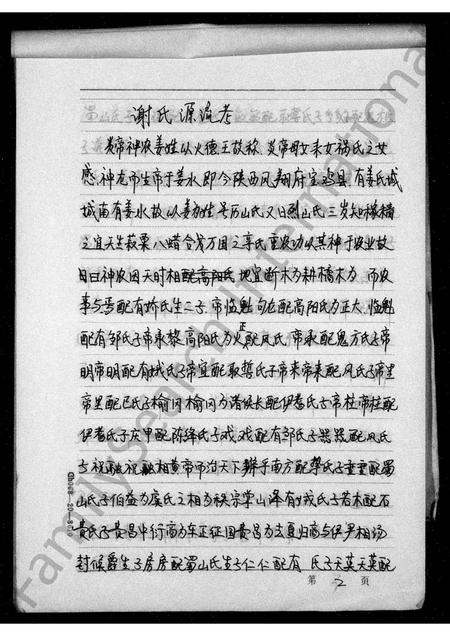 谢氏源流考
炎帝神农姜姓以火德王故称炎帝母女登女娲氏之女
感神龙而生帝于姜水即今陕西凤翔府宝鸡县有姜氏城
城南有姜水故以姜为姓号历山氏又曰烈山氏三岁知稼穑
之宜天生菽粟八蜡合万国之享氏重农功以其神于农业故
曰神农因天时相配高阳氏地宜断木为耕 木为 而农
事兴焉配有 氏生二子帝临魁句龙配高阳氏为正大临魁
配有邹氏子帝承黎高阳氏为火正配风氏帝承配鬼方氏子帝
明帝明配有娀氏子帝宜配 氏子帝来帝来配风氏子帝里
帝里配巳氏子榆冈榆冈为诸侯长配伊耆氏子帝柱帝柱配
伊耆氏子庆甲配陈绛氏子戏戏配有邹氏子器器配风氏
子祝融祝融相黄帝而治天下辩乎南方配 氏子重重配蜀
山氏子伯益为虞氏之相为秩宗掌山泽有娀氏子若木配石
费氏子费昌中衍高为车正征国费昌为去夏归商与伊尹相汤
封侯爵生子房房配蜀山氏生子仁仁配有 氏子天英天英配
第 2 页
FamilySearch International